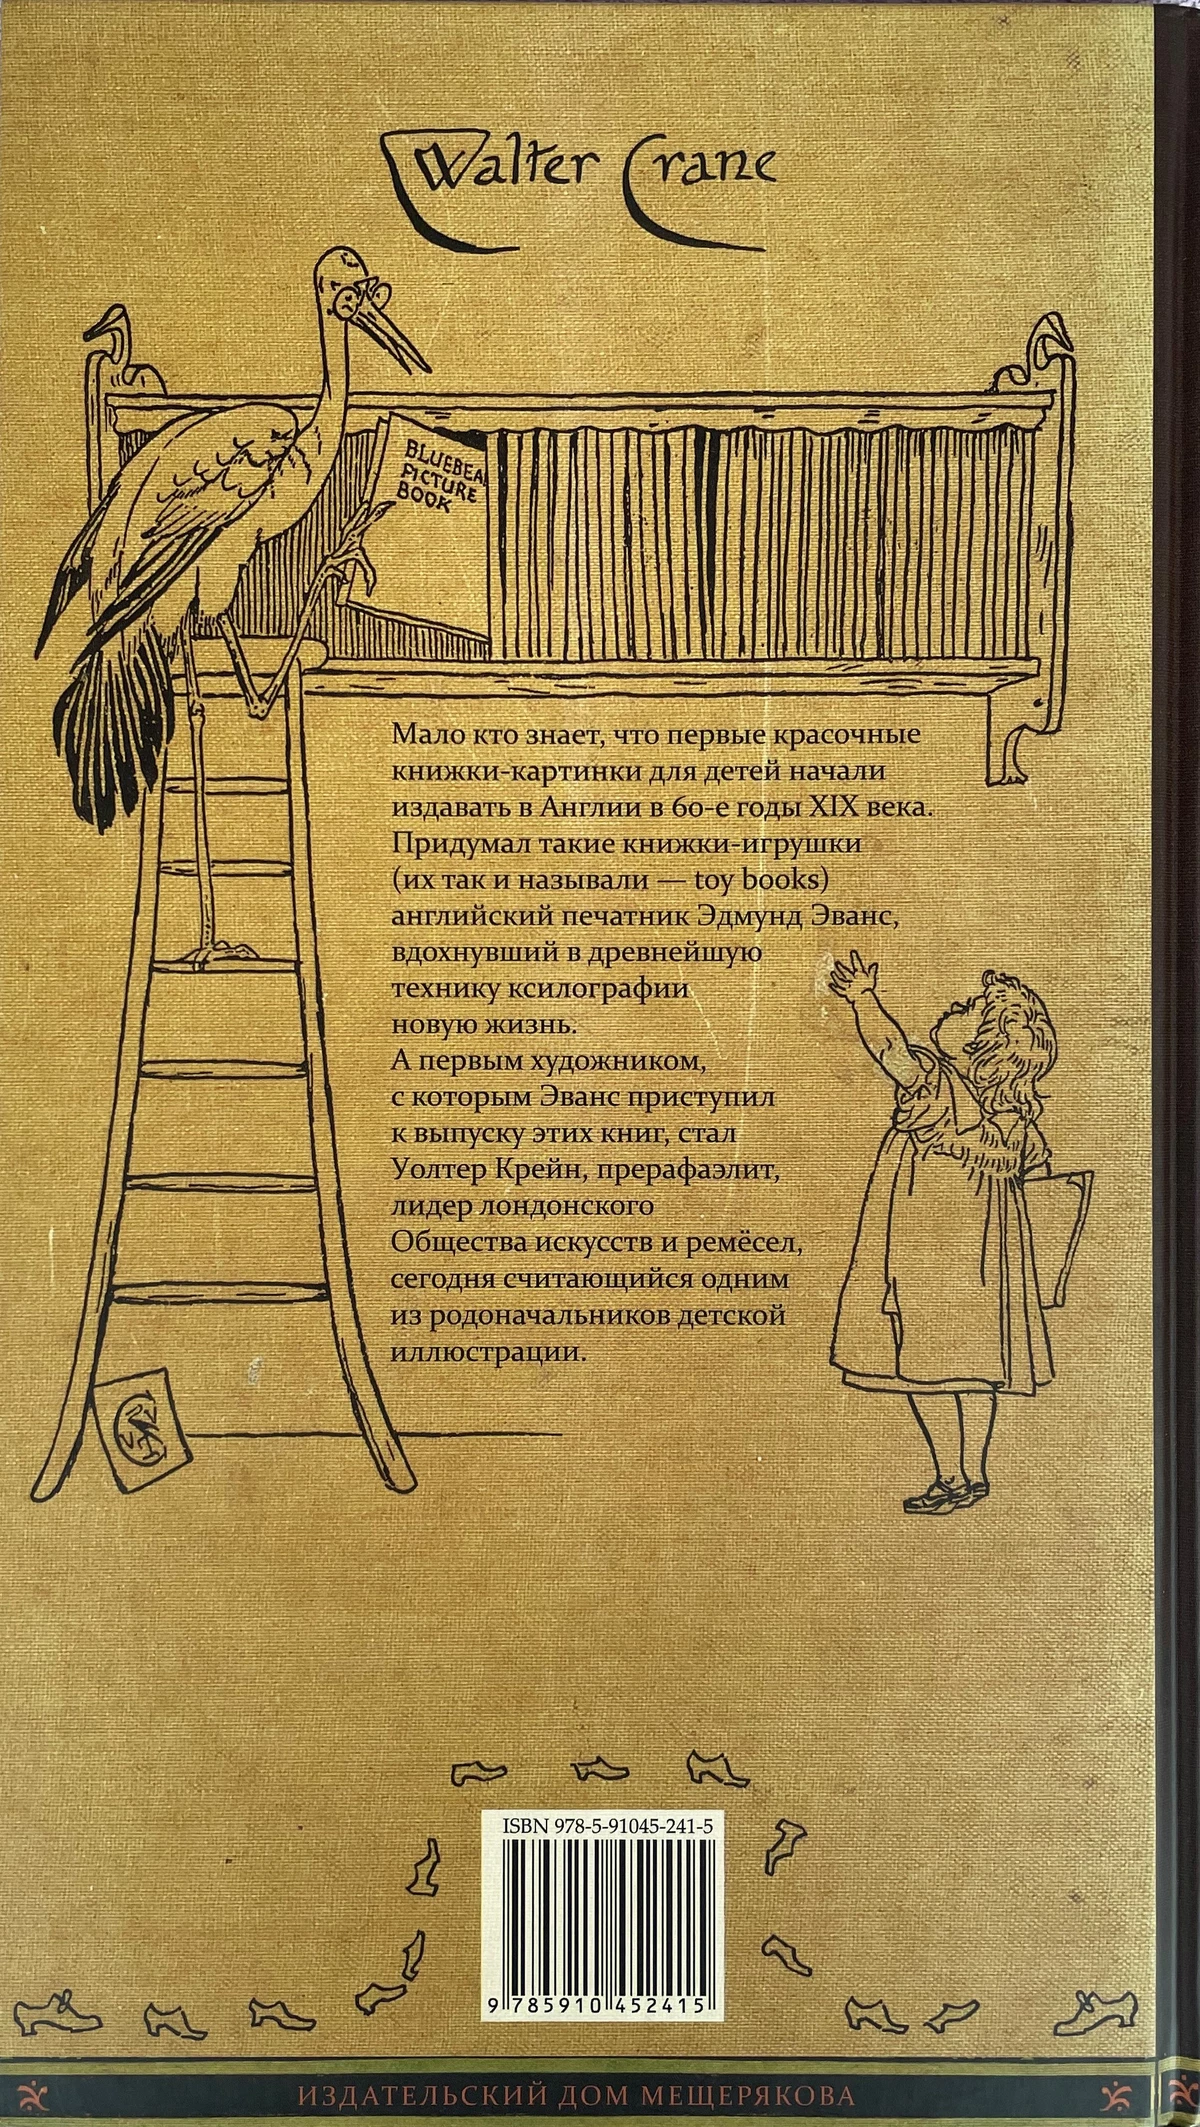 Walter Crane
BLUEBEA
PICTURE
BOOK
Мало кто знает, что первые красочные
книжки-картинки для детей начали
издавать в Англии в 60-е годы XIX века.
Придумал такие книжки-игрушки
(их так и называли — toy books)
английский печатник Эдмунд Эванс,
вдохнувший в древнейшую
технику ксилографии
новую жизнь.
А первым художником,
с которым Эванс приступил
к выпуску этих книг, стал
Уолтер Крейн, прерафаэлит,
лидер лондонского
Общества искусств и ремёсел,
сегодня считающийся одним
из родоначальников детской
иллюстрации.
ISBN 978-5-91045-241-5
9 785910 452415
ИЗДАТЕЛЬСКИЙ ДОМ МЕЩЕРЯКОВА